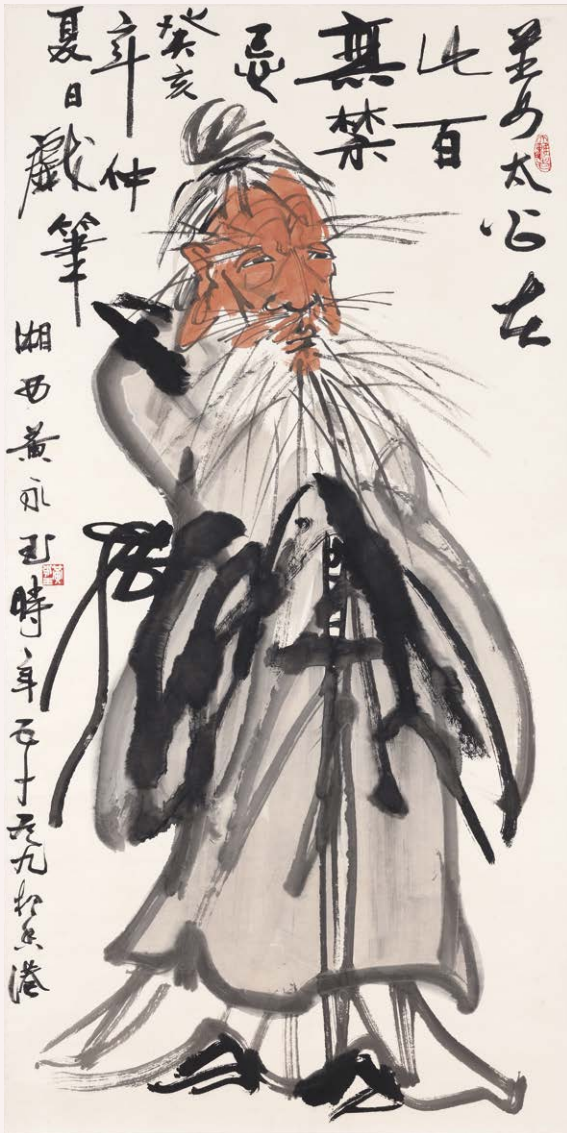 姜太公在
此百
無禁
忌
癸亥
年仲
夏日戲筆
湘西黃永玉時年五十九於香港